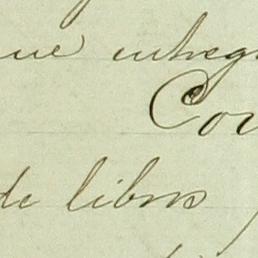 que entreg
Cou
de libros